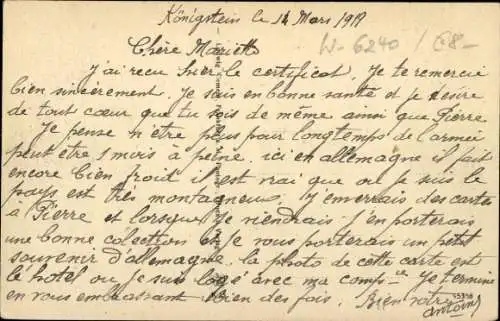 Königstein le 14 Mars 1919
W-6240 / 68-
Chère Mariette
J'ai recu hier le certificat. Je te remercie
bien sincèrement. Je suis en bonne santé et je désire
de tout cœur que tu sois de même ainsi que Pierre.
Je pense n'etre plus pour longtemps de l'armée
peut etre 1 mois à peine. ici en allemagne il fait
encore bien froid il est vrai que ou je suis le
pays est très montagneux. J'enverrais des cartes
à Pierre et lorsque je viendrais j'en porterais
une bonne colection et je vous porterais un petit
souvenir d'allemagne. la photo de cette carte est
le hotel ou je suis logé avec ma comp-ie. Je termine
en vous embrassant bien des fois. Bien votre
Antoine